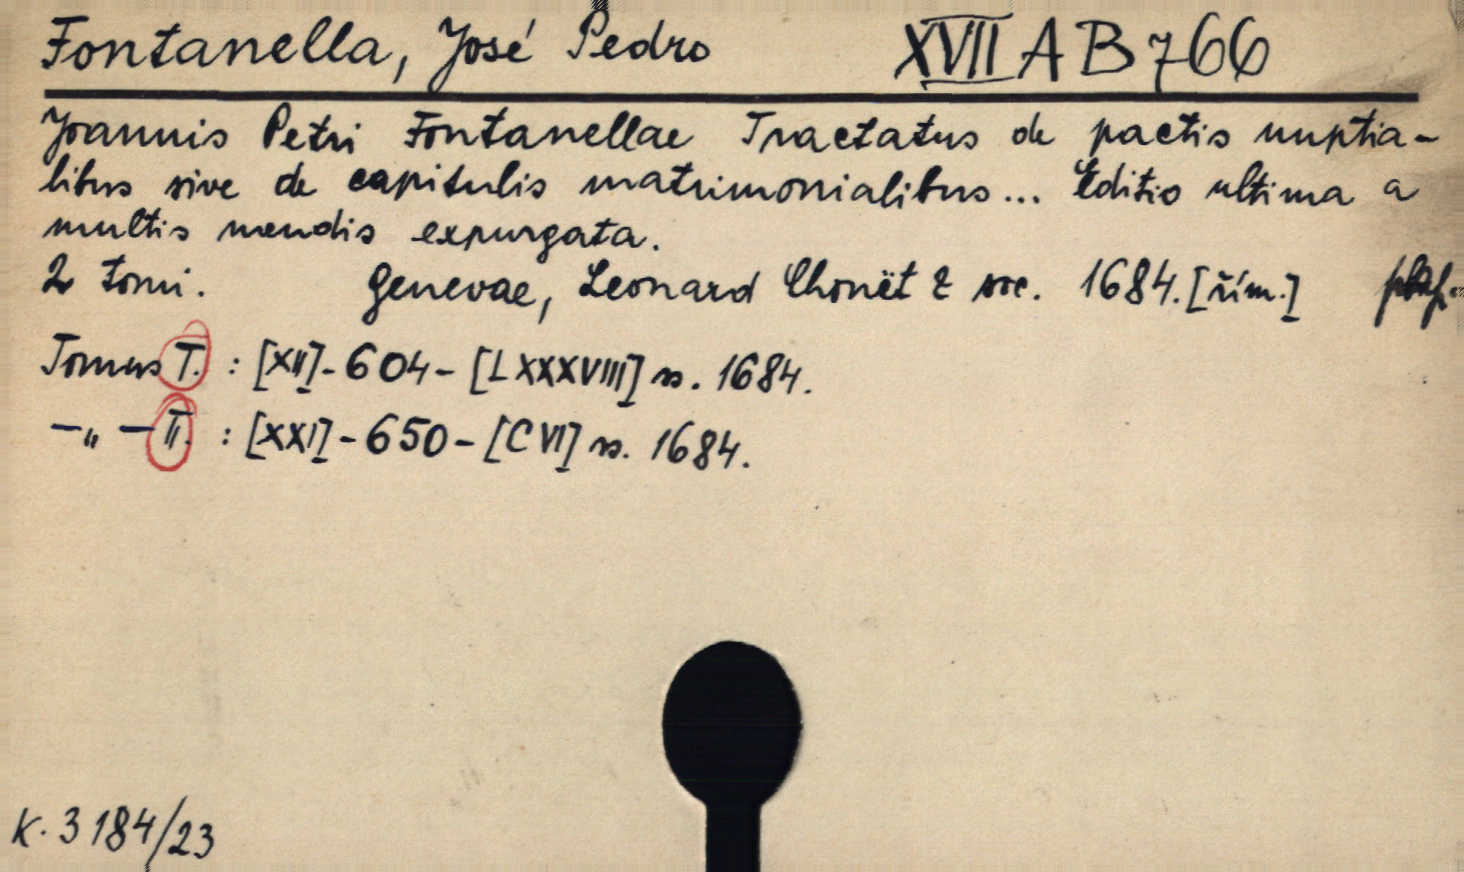 Fontanella, José Pedro XVII A B 766
Joannis Petri Fontanellae Tractatus de pactis nuptia-
libus sive de capitulis matrimonialibus... Editio ultima a
multis mendis expurgata.
2 tomi. Genevae, Leonard Chouët & soc. 1684. [řím.]
Tomus I. : [XII]-604-[LXXXVIII] s. 1684.
-„- II. : [XXI]-650-[CVI] s. 1684.
K. 3184/23